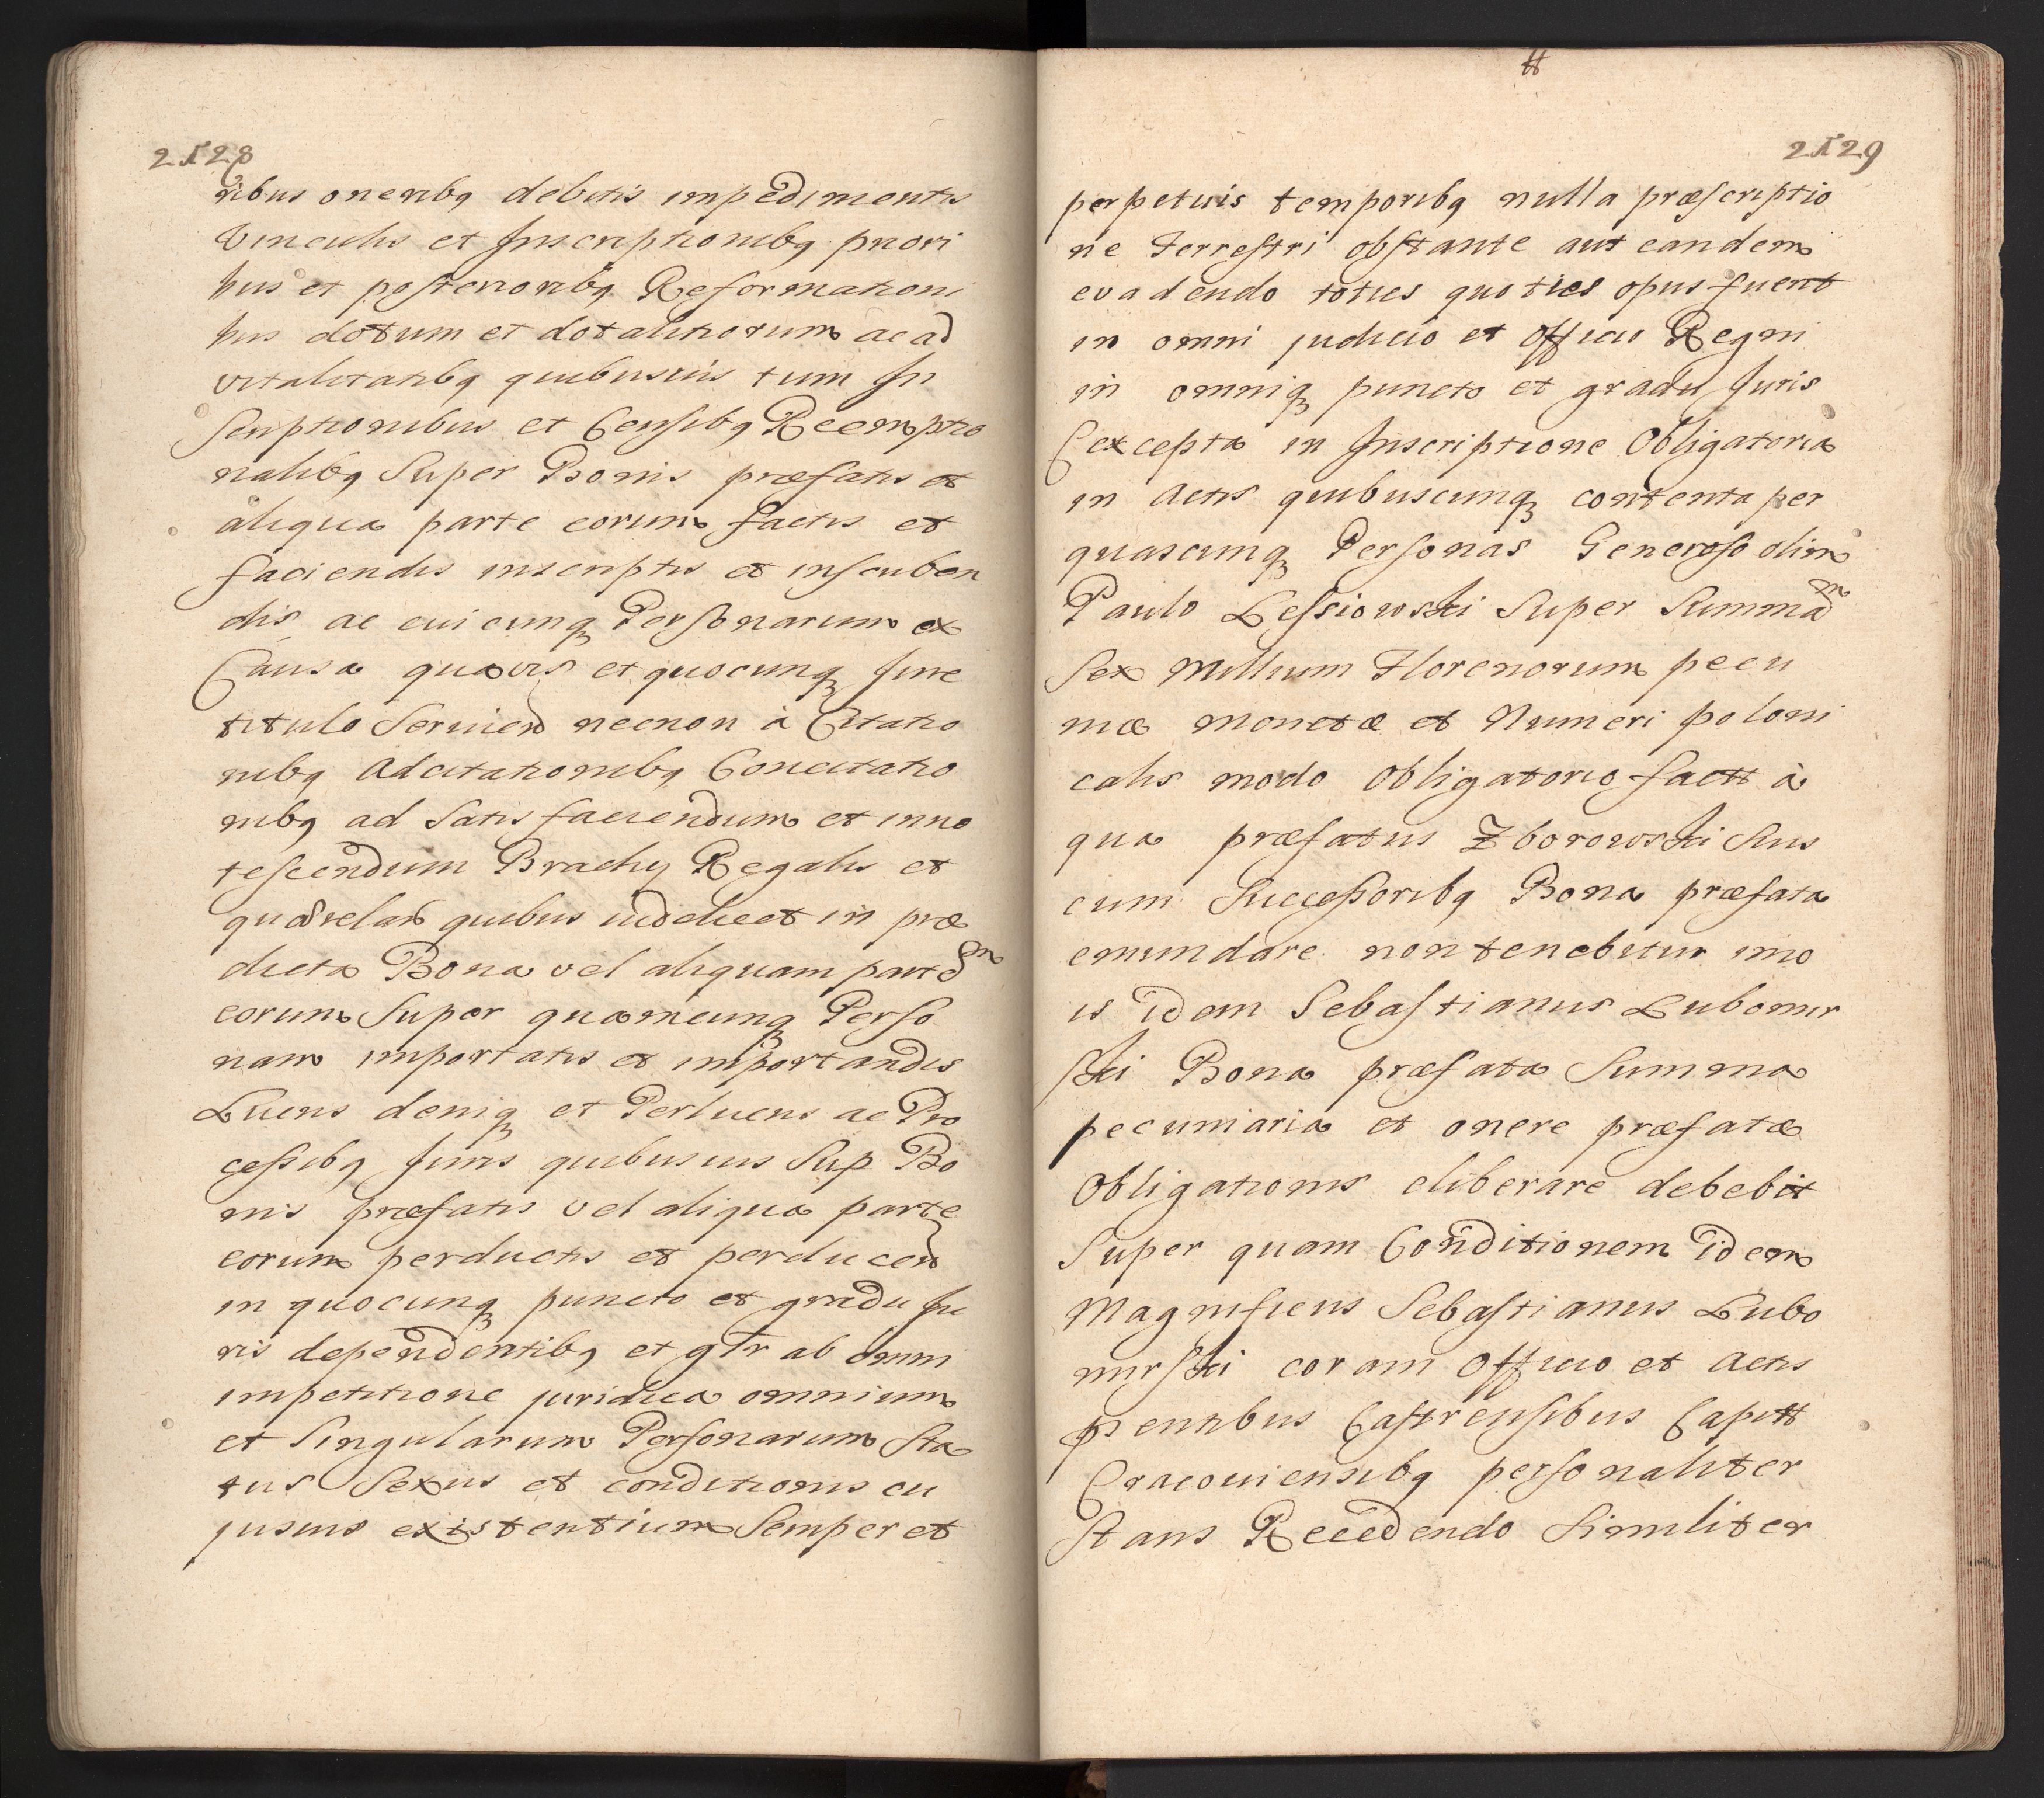 2128
ribus oneribq debitis impedimentis
Vinculis et Inscriptionibq priori
bus et posterioribq Reformationi
bus dotum et dotalitiorum ac ad
vitalitatibq quibusvis tum In
scriptionibus et Censibq Reemptio
nalibq Super Bonis præfatis et
aliqua parte eorum factis et
faciendis inscriptis et inscriben
dis ac cuicunq Personarum ex
Causa quavis et quocunq Jure
titulo Servien necnon à Citatio
nibq Adcitationibq Concitatio
nibq ad Satisfaciendum et inno
tescendum Brachy Regalis et
quærelas quibus videlicet in præ
dicta Bona vel aliquam partem
eorum Super quamcunq Perso
nam importatis et importandis
Luens deniq et Perluens ac Pro
cessibq Juris quibusvis Sup Bo
nis præfatis vel aliqua parte
eorum perductis et perducen
in quocunq puncto et gradu Ju
ris dependentibq et gtr ab omni
impetitione juridica omnium
et Singularum Personarum Sta
tus Sexus et conditionis cu
jusvis existentium Semper et
2129
perpetuis temporibq nulla præscriptio
ne Terrestri obstante aut eandem
evadendo toties quoties opus fuerit
in omni judicio et officio Regni
in omniq puncto et gradu Juris
Excepta in Inscriptione Obligatoria
in Actis quibuscunq contenta per
quascunq Personas Generoso olim
Paulo Lessiowski Super Summam
Sex Millium Florenorum pecu
niæ monetæ et Numeri poloni
calis modo obligatorio factt à
qua præfatus Zborowski Suis
cum Successoribq Bona præfata
emundare non tenebitur imo
is idem Sebastianus Lubomir
ski Bona præfata Summa
pecuniaria et onere præfatæ
Obligationis eliberare debebit
Super quam Conditionem idem
Magnificus Sebastianus Lubo
mirski coram Officio et Actis
pntibus Castrensibus Capitt
Cracoviensibq personaliter
stans Recedendo Similiter